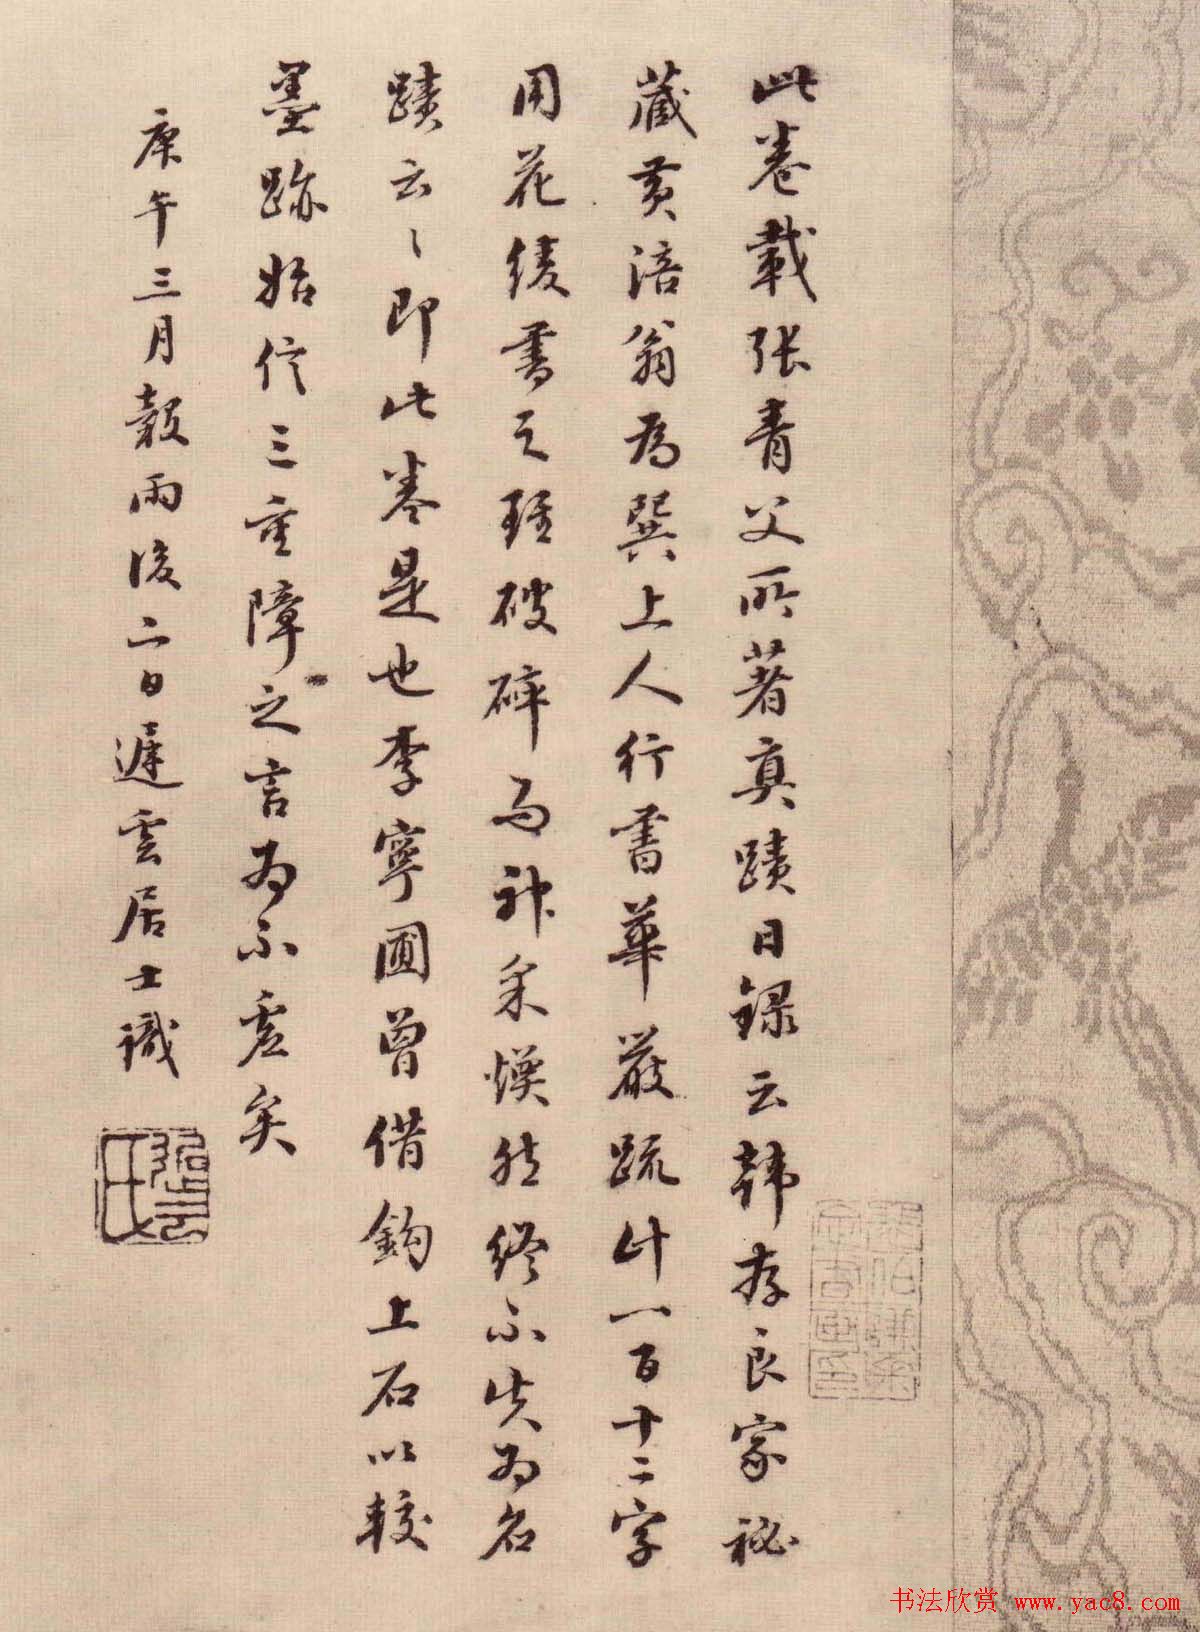 此卷載張青父所著真蹟日錄云韓存良家祕
藏黃涪翁為巽上人行書華嚴疏計一百十二字
用花綾書之雖破碎而神采煥然終不失為名
蹟云〻即此卷是也李寧圃曾借鉤上石以較
墨跡始信三重障之言為不虛矣
庚午三月穀雨後二日遲雲居士識
书法欣赏 www.yac8.com